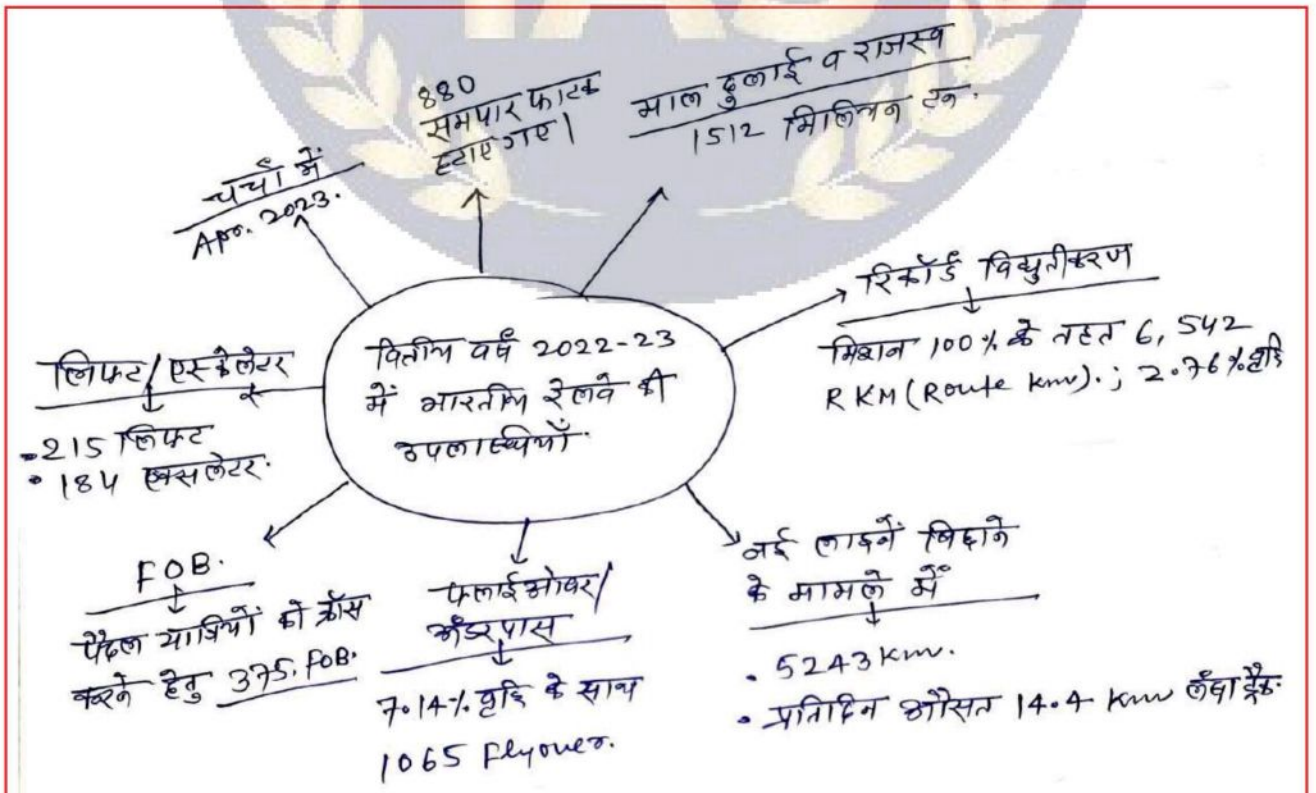 चर्चा में
Apr. 2023.
880
समपार फाटक
हटाए गए।
माल ढुलाई व राजस्व
1512 मिलियन टन.
रिकॉर्ड विद्युतीकरण
मिशन 100% के तहत 6,542
RKM (Route km).; 2.76% वृद्धि
वित्तीय वर्ष 2022-23
में भारतीय रेलवे की
उपलब्धियाँ.
लिफ्ट/एस्केलेटर
• 215 लिफ्ट
• 184 एक्सलेटर.
FOB.
पैदल यात्रियों को क्रॉस
करने हेतु 375. FOB.
फ्लाईओवर/
अंडरपास
7.14% वृद्धि के साथ
1065 Flyover.
नई लाइनें बिछाने
के मामले में
• 5243 km.
• प्रतिदिन औसत 14.4 km लंबा ट्रैक.